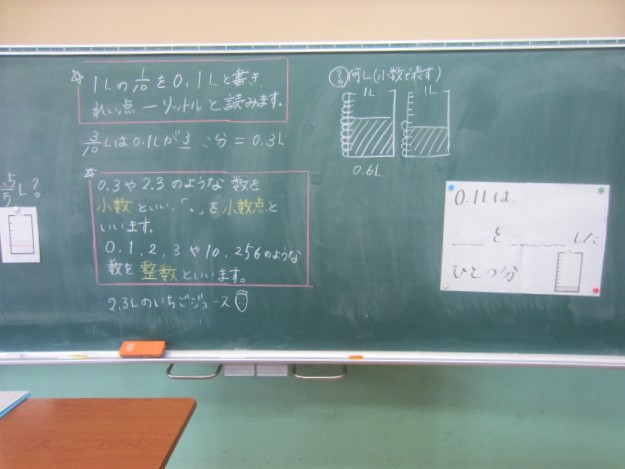 ☆ 1Lの1/10を0.1Lと書き、
れい点一リットルと読みます。
3/10Lは0.1Lが3こ分=0.3L
☆
0.3や2.3のような数を
小数といい、「.」を小数点と
いいます。
0、1、2、3や10、256のような
数を整数といいます。
2.3Lのいちごジュース
? 何L(小数で表す)
1L 1L
0.6L
5 L?
5
0.1Lは、
を した
ひとつ分